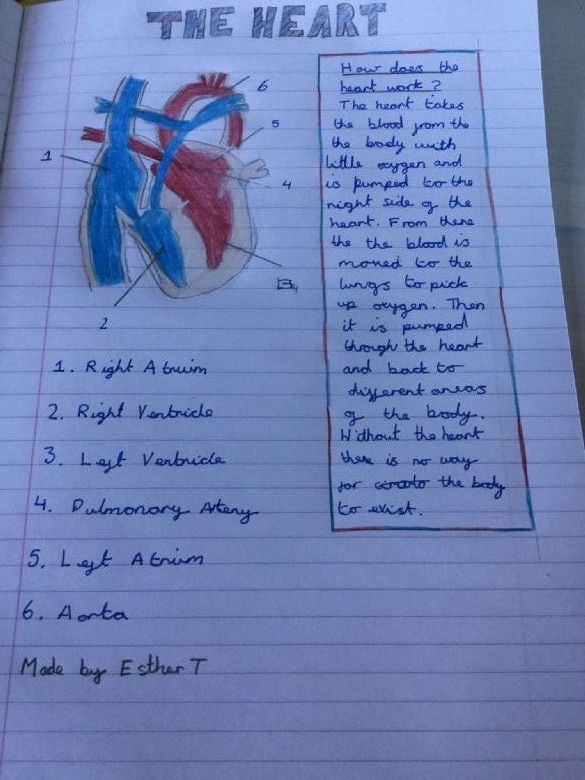 THE HEART
6
5
1
4
3
2
1. Right Atrium
2. Right Ventricle
3. Left Ventricle
4. Pulmonary Artery
5. Left Atrium
6. Aorta
Made by Esther T
How does the
heart work?
The heart takes
the blood from the
the body with
little oxygen and
is pumped to the
right side of the
heart. From there
the the blood is
moved to the
lungs to pick
up oxygen. Then
it is pumped
through the heart
and back to
different areas
of the body.
Without the heart
there is no way
for the body
to exist.